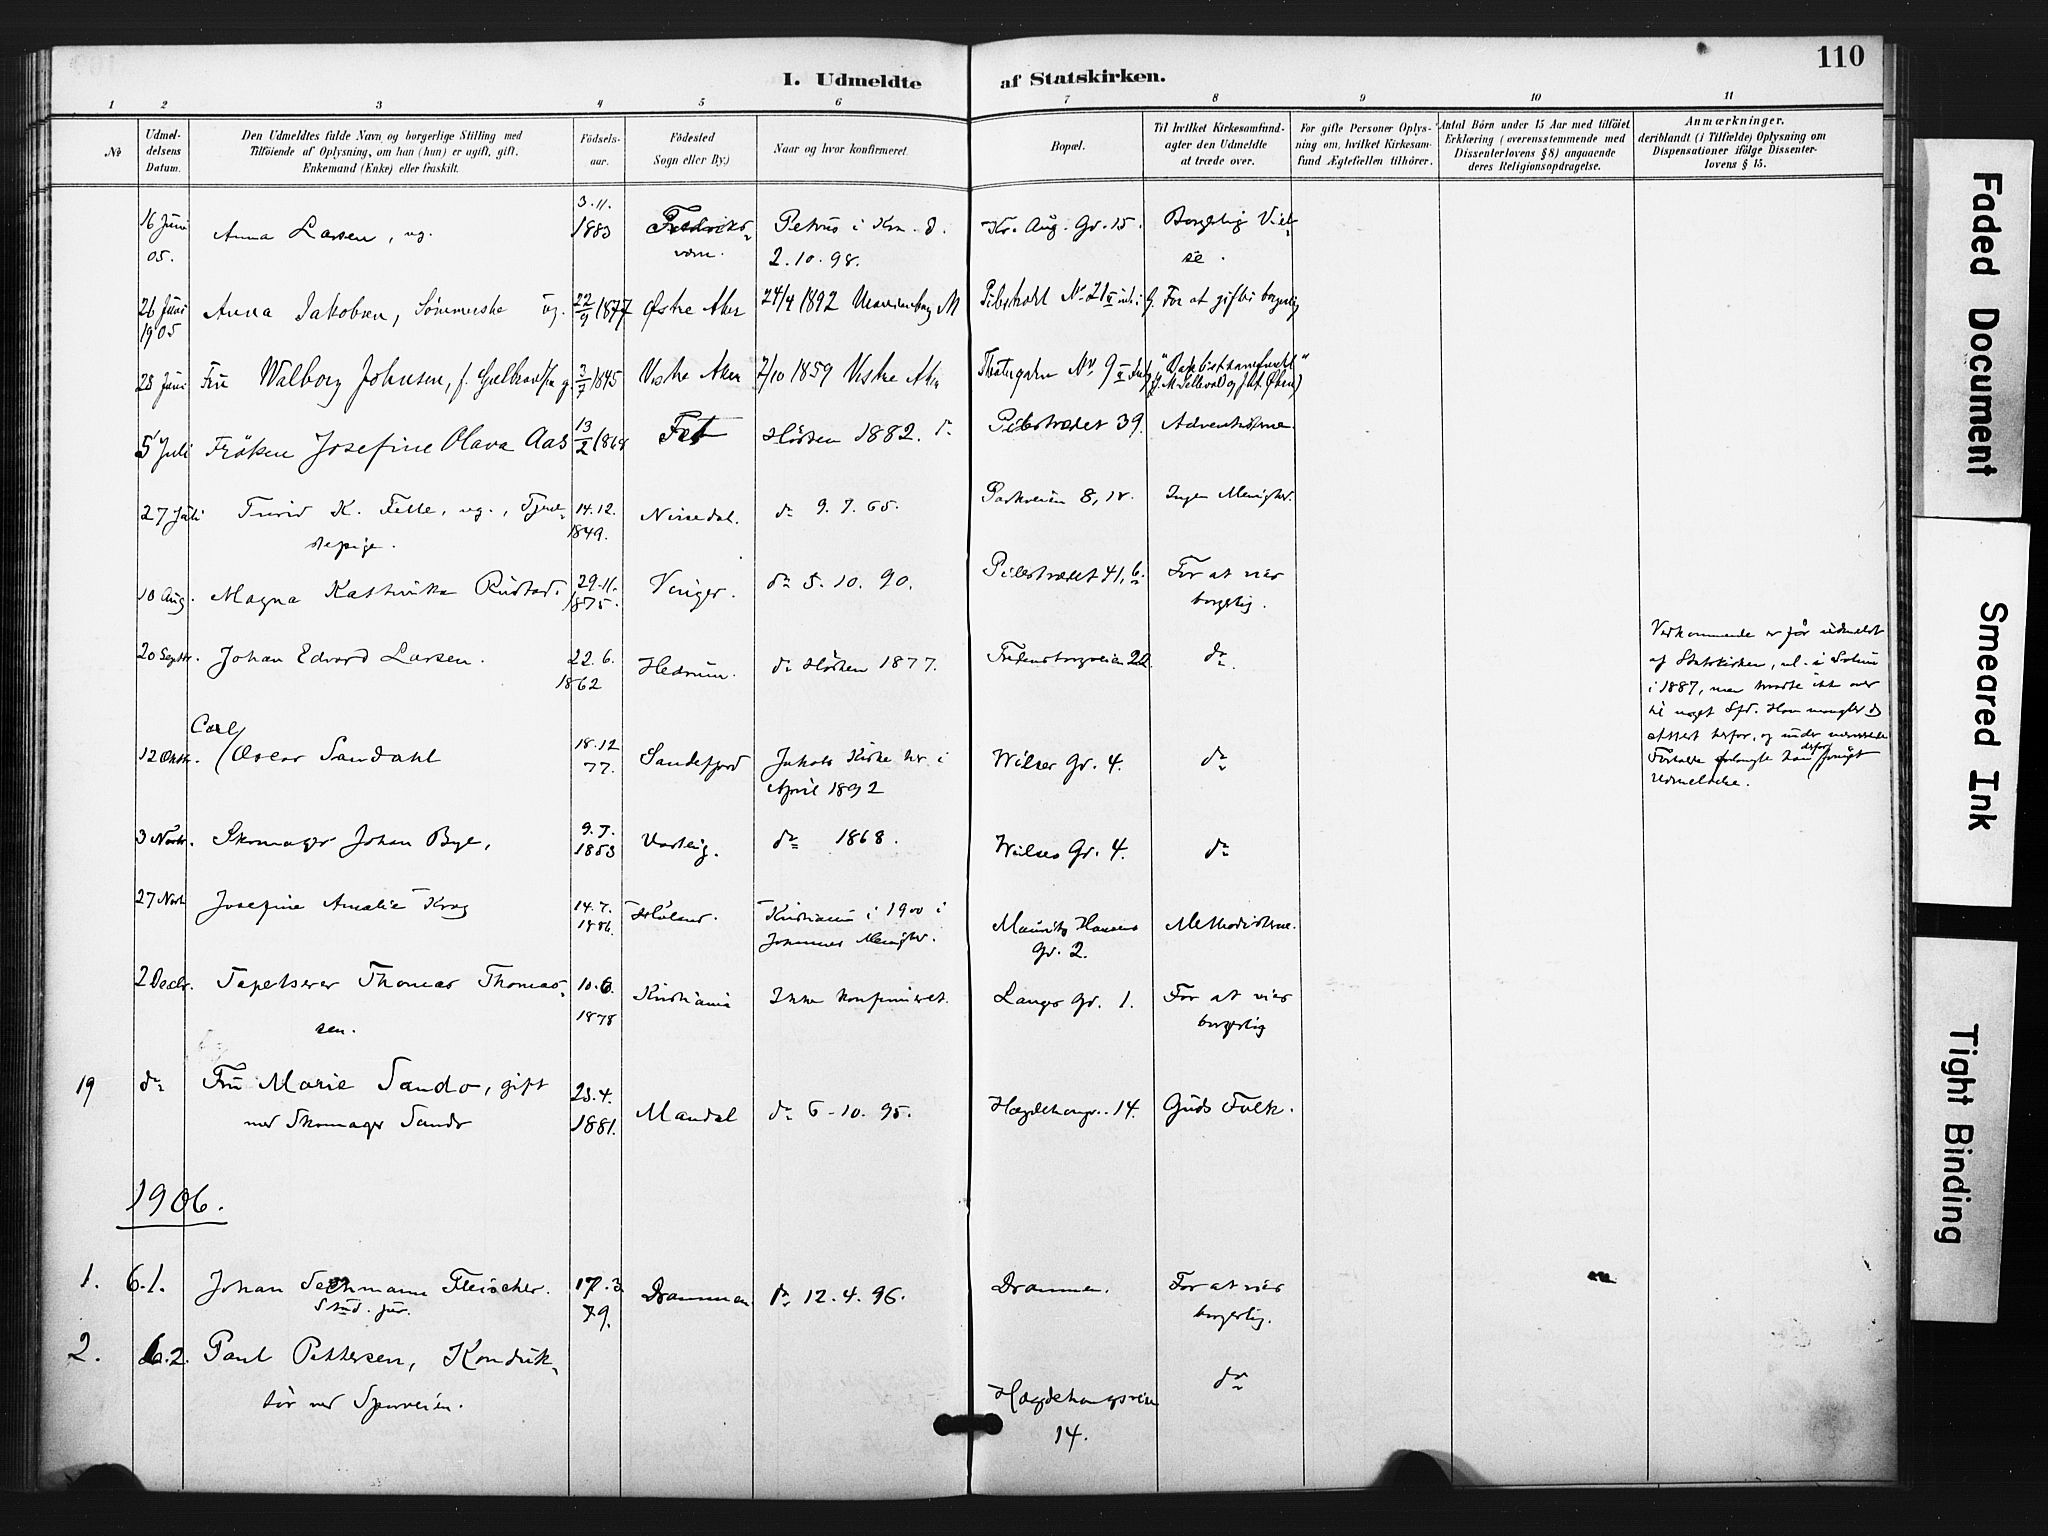 110
I. Udmeldte af Statskirken.
1 2 3 4 5 6 7 8 9 10 11
№
Udmel-
delsens
Datum.
Den Udmeldtes fulde Navn og borgerlige Stilling med
Tilföiende af Oplysning, om han (hun) er ugift, gift.
Enkemand (Enke) eller fraskilt.
Födsels-
aar.
Födested
Sogn eller By.)
Naar og hvor konfirmeret.
Bopæl.
Til hvilket Kirkesamfund-
agter den Udmeldte
at træde over.
For gifte Personer Oplys-
ning om, hvilket Kirkesam-
fund Ægtefellen tilhörer.
Antal Börn under 15 Aar med tilföiet
Erklæring (overensstemmende med
Dissenterlovens § 8) angaaende
deres Religionsopdragelse.
Anmærkninger,
deriblandt (i Tilfælde) Oplysning om
Dispensationer ifölge Dissenter-
lovens § 15.
16 Juni
05.
Anna Larsen, ug.
3.11.
1883
Fredriks-
værn.
Petrus i Krn. d.
2.10.98.
Kr. Aug. Gr. 15.
Borgelig Viel-
se.
26 Juni
1905
Anna Jakobsen, Sömmerske ug.
22/9 1877
Østre Aker
24/4 1892
No 21 II
For at giftes borgerlig
28 Juni
Fru Walborg Johnsen, f.
3/7 1845
Vestre Aker
7/10 1859 Vestre Aker
No 9 II
5 Juli
Fröken Josefine Olava Aas
13/2 1868
Fet
Höiesen 1882.
Pilestrædet 39.
Adventisterne
27 Juli
Turid K. Felle, ug., Tjene-
stepige.
14.12.
1849.
Nissedal.
do 9.7.65.
Parkveien 8, IV.
Ingen Menighet.
10 Aug.
Magna Kathinka Rustad.
29.11.
1875.
Vinger.
do 5.10.90.
Pilestrædet 41, 6.
For at vies
borgelig.
20 Septbr.
Johan Edvard Larsen.
22.6.
1862
Hedrum.
do 1877.
Fredensborgveien 22.
do
Vedkommende er før udmeldt
af Statskirken, nl. i Solum
i 1887, men traadte ikke over
til noget Sfd. Han mangler
attest herfor, og under
Forhold forlangte han derfor fornyet
udmeldelse.
12 Oktbr.
Carl
Oscar Sandahl
18.12
77.
Sandefjord
Jakobs Kirke her i
April 1892
Wilses Gr. 4.
do
3 Novbr.
Skomager Johan Bye,
9.7.
1853
Varteig.
do 1868.
Wilses Gr. 4.
do
27 Novb.
Josefine Amalie Krog
14.7.
1886.
Høland.
Kristiania i 1900 i
Johannes Menighet.
Mauritz Hansens
Gr. 2.
Methodisterne.
2 Decbr.
Tapetserer Thomas Thomas-
sen.
10.6.
1878
Kristiania
Ikke konfirmeret.
Langes Gr. 1.
For at vies
borgerlig
19
do
Fru Marie Sando, gift
med Skomager Sando
23.4.
1881.
Mandal
do 6-10.95.
Hægdehaugv. 14.
Guds Folk.
1906.
1.
6.1.
Johan Fleischer.
Stud. jur.
17.3
79.
Drammen
do 12.4.96.
Drammen.
For at vies
borgerlig.
2.
6.2.
Paul Pettersen, Konduk-
tör ved Sporveien.
Hægdehaugsveien
14.
do
Faded Document
Smeared Ink
Tight Binding